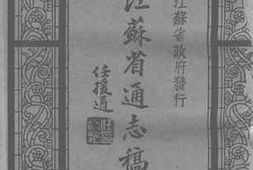 江蘇省政府發行
江蘇省通志稿
任援道